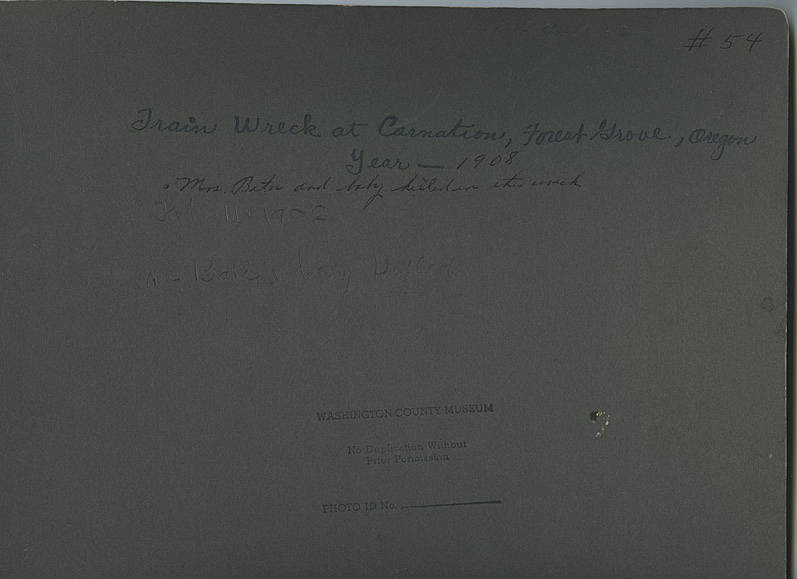 # 54
Train Wreck at Carnation, Forest Grove, Oregon
Year — 1908
Mrs. and baby killed in this wreck
WASHINGTON COUNTY MUSEUM
No Duplication Without
Prior Permission
PHOTO ID No.